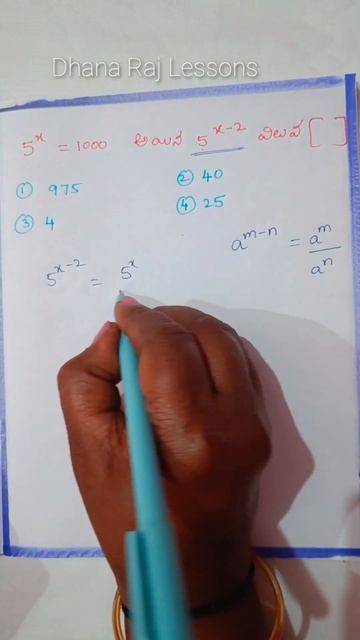 Dhana Raj Lessons
5^x = 1000 అయిన 5^{x-2} విలువ [ ]
① 975 ② 40
③ 4 ④ 25
a^{m-n} = a^m / a^n
5^{x-2} = 5^x